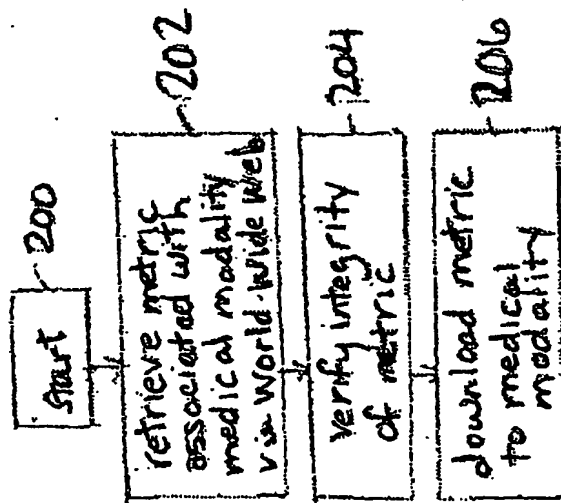 start
200
retrieve metric
associated with
medical modality
via World-Wide Web
202
verify integrity
of metric
204
download metric
to medical
modality
206